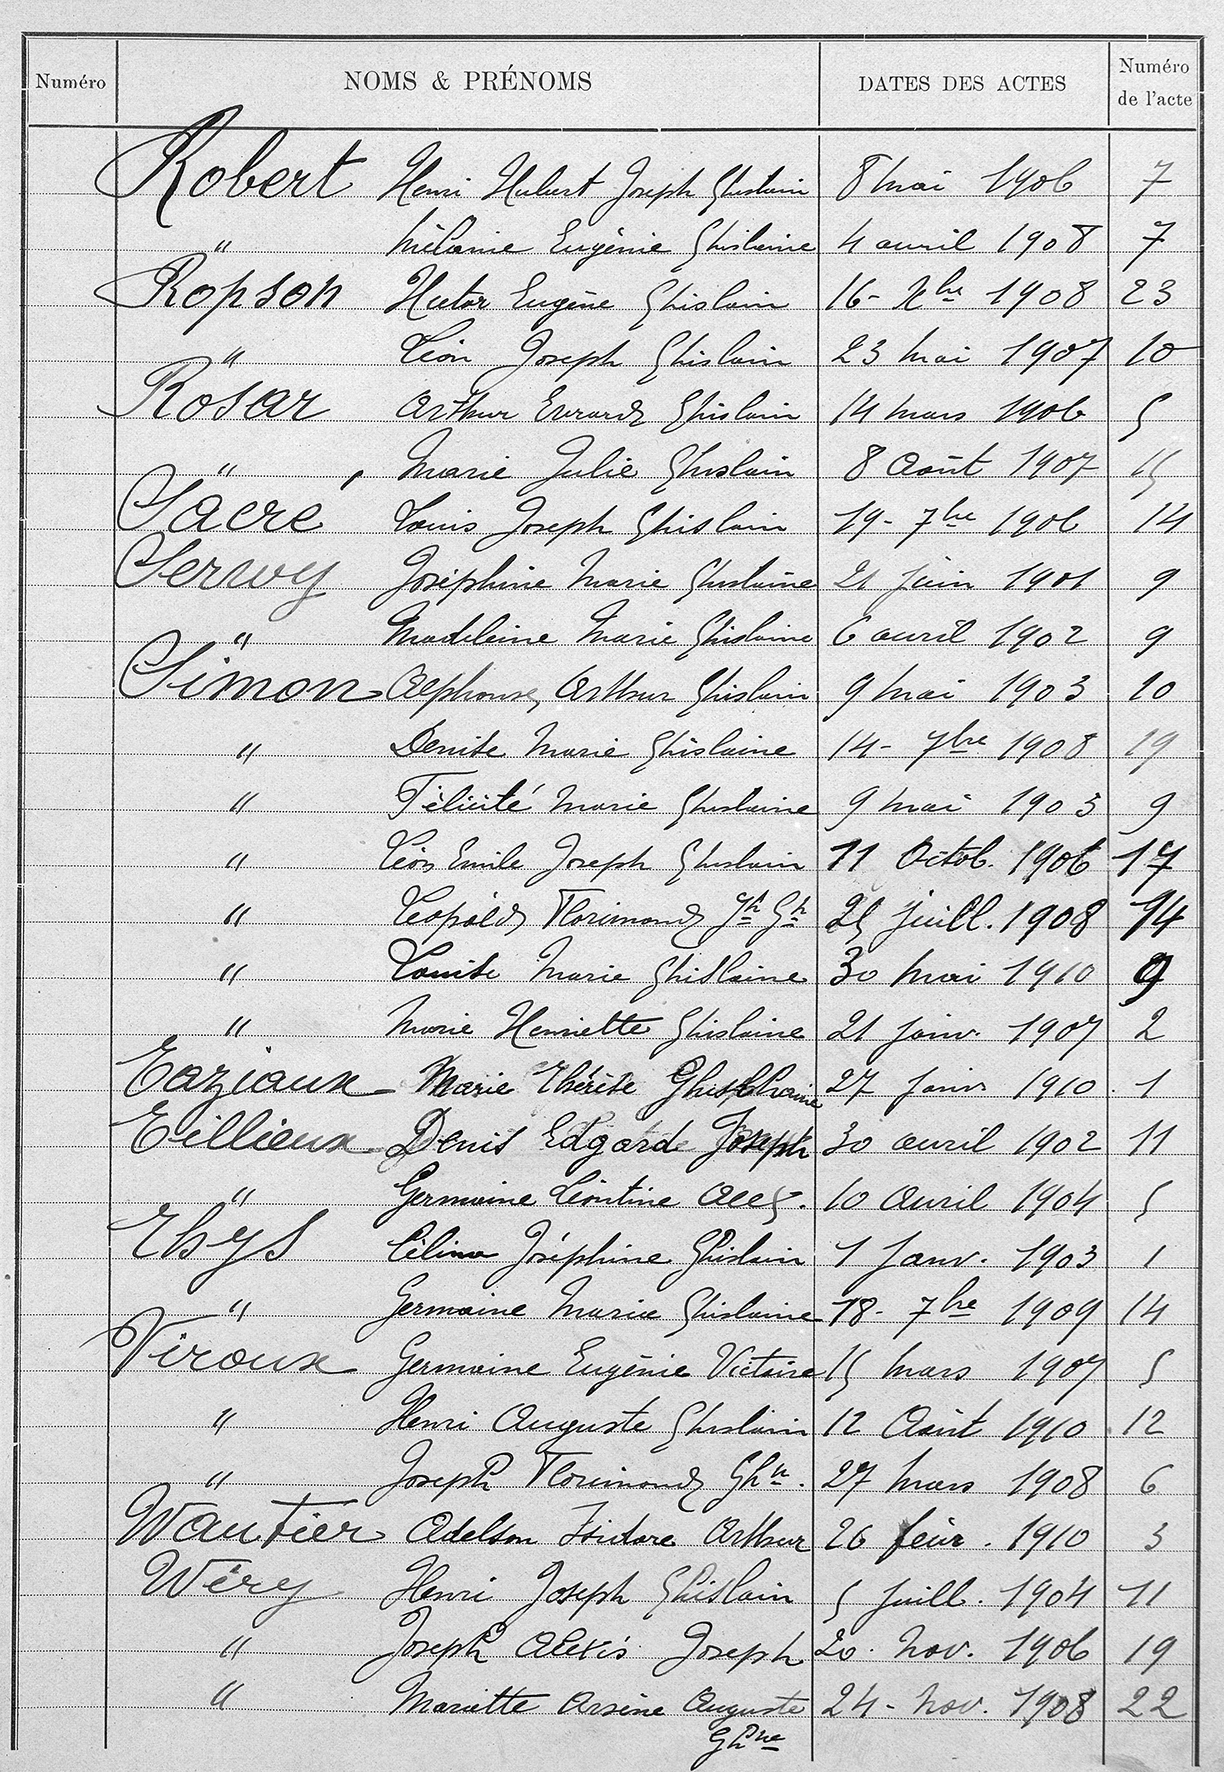 Numéro NOMS & PRÉNOMS DATES DES ACTES Numéro de l'acte
Robert Henri Hubert Joseph Ghislain 8 mai 1906 7
" Mélanie Eugénie Ghislaine 4 avril 1908 7
Ropson Hector Eugène Ghislain 16- Xbre 1908 23
" Léon Joseph Ghislain 23 mai 1907 10
Rosar Arthur Evrard Ghislain 14 mars 1906 5
" Marie Julie Ghislain 8 Août 1907 15
Sacré Louis Joseph Ghislain 19- 7bre 1906 14
Servoy Joséphine Marie Ghislaine 21 juin 1901 9
" Madeleine Marie Ghislaine 6 avril 1902 9
Simon Alphonse Arthur Ghislain 9 mai 1903 10
" Denise Marie Ghislaine 14- 7bre 1908 19
" Félicité Marie Ghislaine 9 mai 1903 9
" Léon Emile Joseph Ghislain 11 Octob. 1906 17
" Léopold Florimond Jh Gh 25 juill. 1908 14
" Louise Marie Ghislaine 30 mai 1910 9
" Marie Henriette Ghislaine 21 janv. 1907 2
Taziaux Marie Thérèse Ghislaine 27 janv 1910 1
Tillieux Denis Edgard Joseph 30 avril 1902 11
" Germaine Léontine 10 Avril 1904 5
Thys Célina Joséphine Ghislain 1 Janv. 1903 1
" Germaine Maria Ghislaine 18- 7bre 1909 14
Viroux Germaine Eugénie Victoire 15 mars 1907 5
" Henri Auguste Ghislain 12 Août 1910 12
" Joseph Florimond Ghn. 27 mars 1908 6
Wautier Adelson Isidore Arthur 26 févr. 1910 3
Wéry Henri Joseph Ghislain 5 Juill. 1904 11
" Joseph Alexis Joseph 20. nov. 1906 19
" Mariette Arsène Auguste 24- nov. 1908 22
Ghne